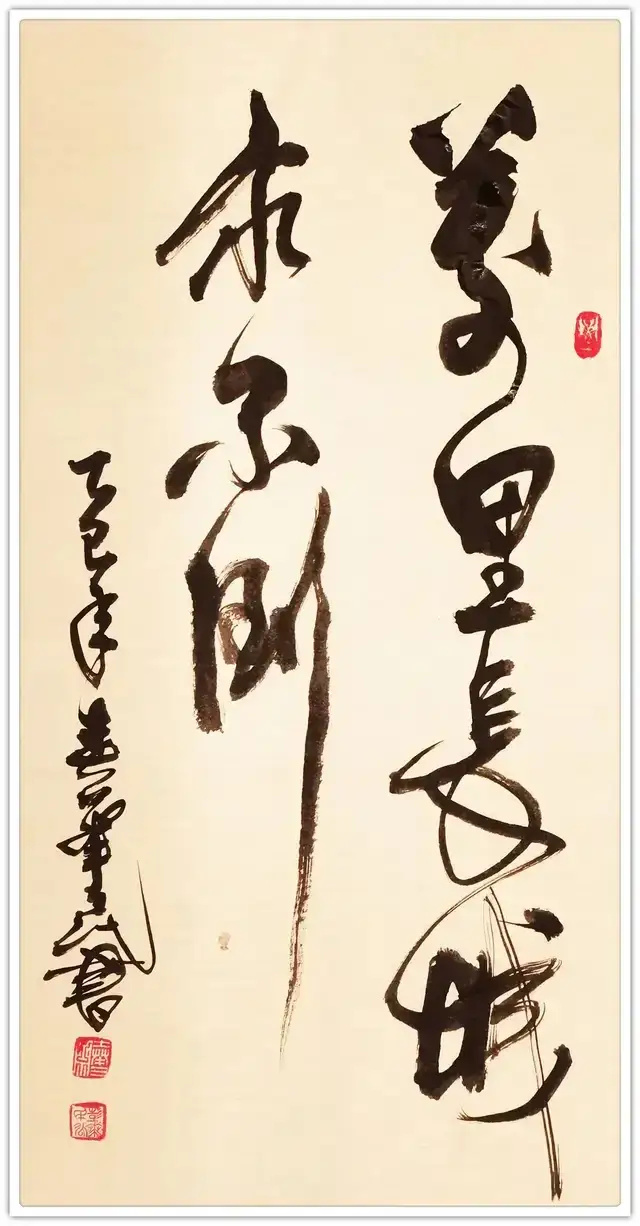 萬里長城
永不倒
乙巳年 書